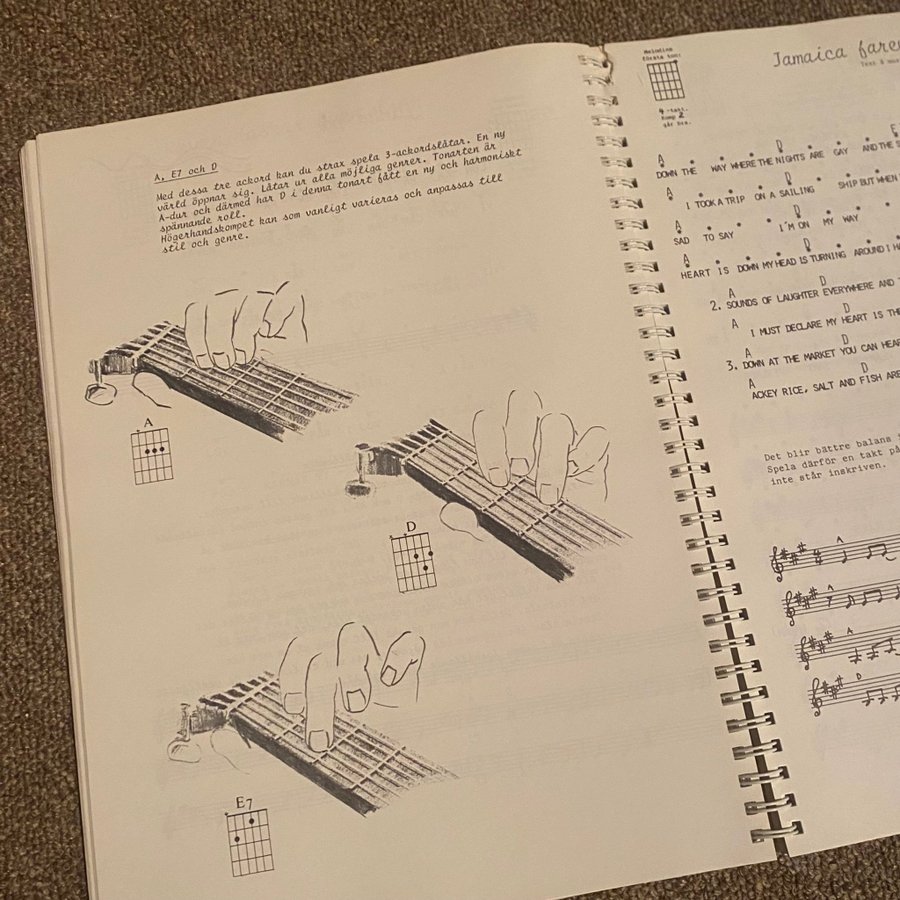 A, E7 och D
Med dessa tre ackord kan du strax spela 3-ackordslåtar. En ny
värld öppnar sig. Låtar ur alla möjliga genrer. Tonarten är
A-dur och därmed har D i denna tonart fått en ny och harmoniskt
spännande roll.
Högerhandskompet kan som vanligt varieras och anpassas till
stil och genre.
A
D
E7
Melodins
första ton:
4-takt.
Komp 2
går bra.
Jamaica
Text &
A D
DOWN THE WAY WHERE THE NIGHTS ARE GAY AND THE
A D
I TOOK A TRIP ON A SAILING SHIP BUT WHEN
A D
SAD TO SAY I'M ON MY WAY
A D
HEART IS DOWN MY HEAD IS TURNING AROUND I
A D
2. SOUNDS OF LAUGHTER EVERYWHERE AND
A D
I MUST DECLARE MY HEART IS
A D
3. DOWN AT THE MARKET YOU CAN HEAR
A D
ACKEY RICE, SALT AND FISH ARE
Det blir bättre balans
Spela därför en takt på
inte står inskriven.
A
A
A
D